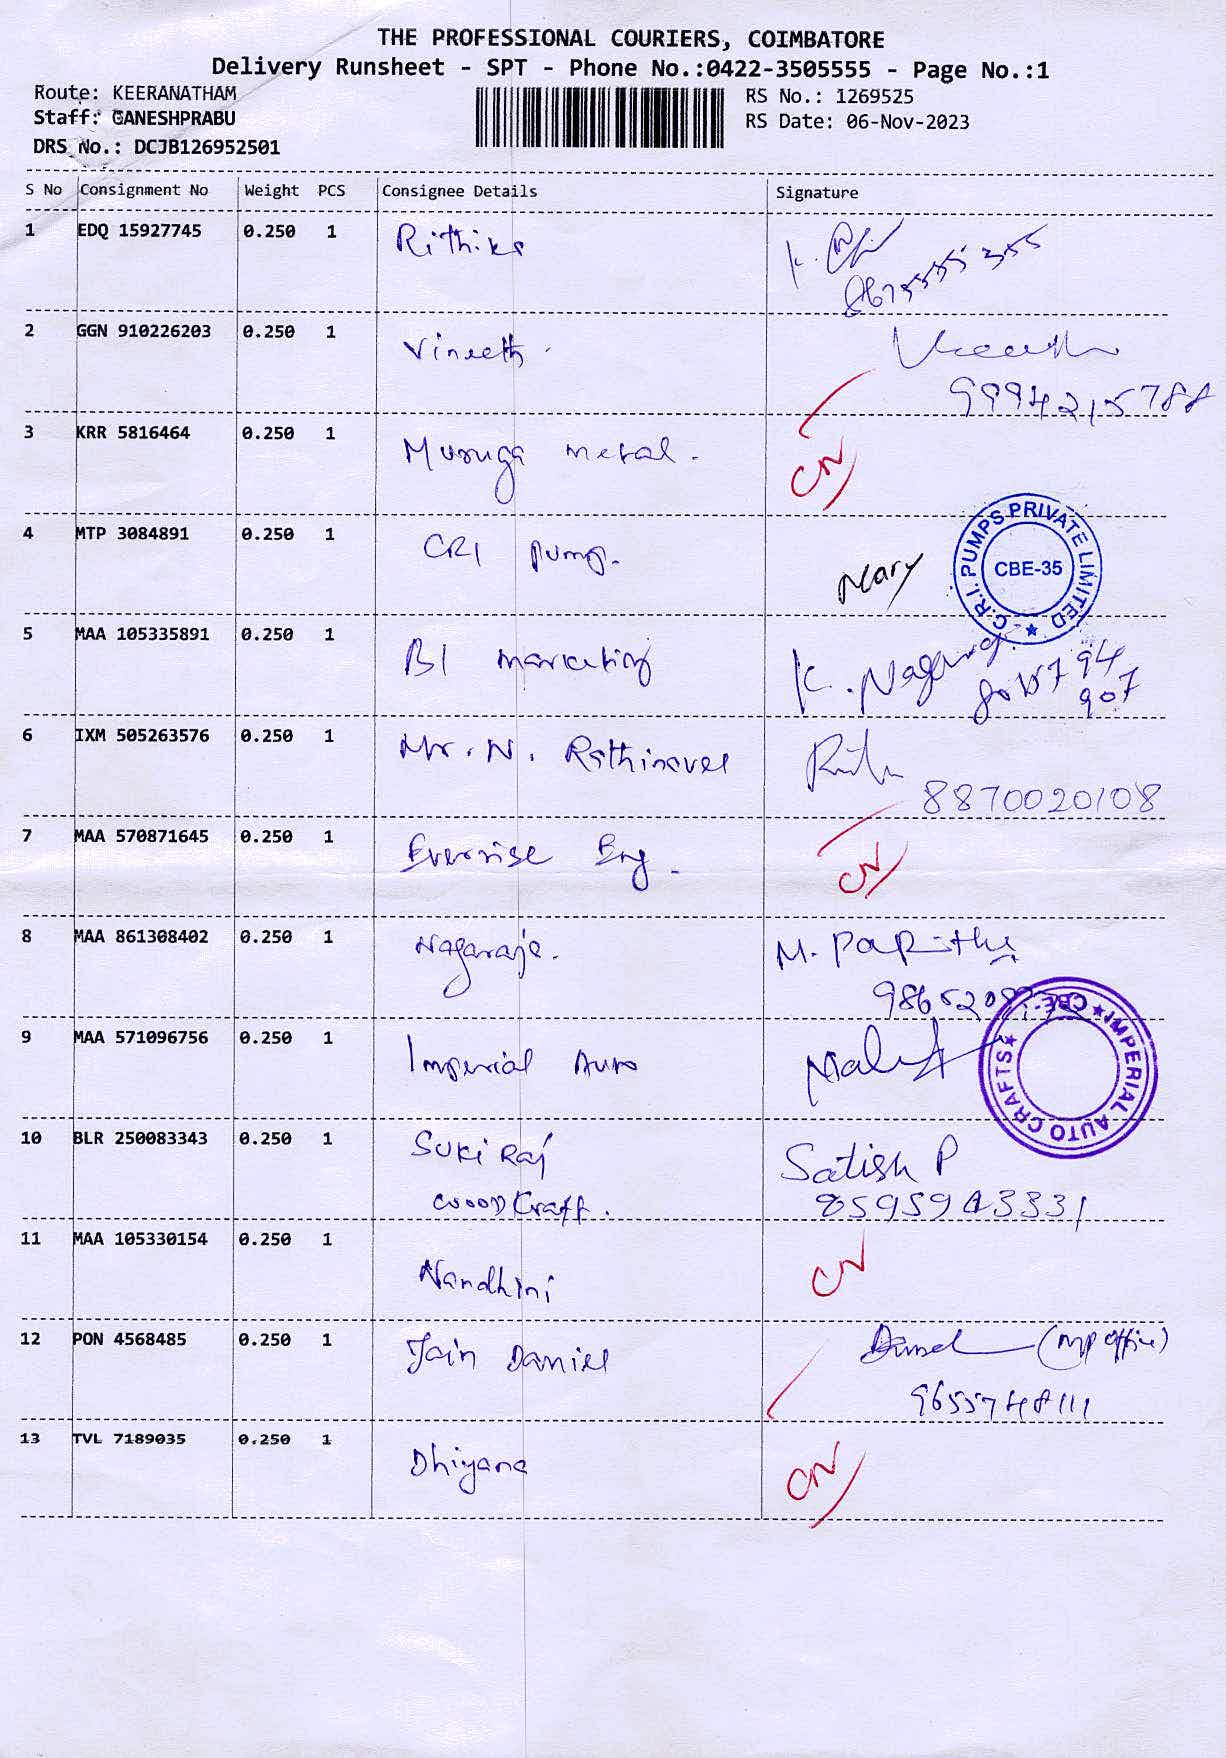 THE PROFESSIONAL COURIERS, COIMBATORE
Delivery Runsheet - SPT - Phone No.:0422-3505555 - Page No.:1
Route: KEERANATHAM RS No.: 1269525
Staff: GANESHPRABU RS Date: 06-Nov-2023
DRS No.: DCJB126952501
S No Consignment No Weight PCS Consignee Details Signature
1 EDQ 15927745 0.250 1 Rithika
2 GGN 910226203 0.250 1 Vineeth.
9994215788
3 KRR 5816464 0.250 1 Muruga metal. CN
4 MTP 3084891 0.250 1 CRI pump. Mary
C.R.I. PUMPS PRIVATE LIMITED ★ CBE-35
5 MAA 105335891 0.250 1 BI marketing K. Nagaraj
6 IXM 505263576 0.250 1 Mr. N. Rathinavel
8870020108
7 MAA 570871645 0.250 1 Everrise Eng. CN
8 MAA 861308402 0.250 1 Nagaraje. M.
9 MAA 571096756 0.250 1 Imperial Auto
★ IMPERIAL AUTO CRAFTS ★ CBE-
10 BLR 250083343 0.250 1 Suki Raj Satish P
woodkraft. 8595943331
11 MAA 105330154 0.250 1 Nandhini CN
12 PON 4568485 0.250 1 Jain Daniel (MP office)
9655748111
13 TVL 7189035 0.250 1 Dhiyana CN